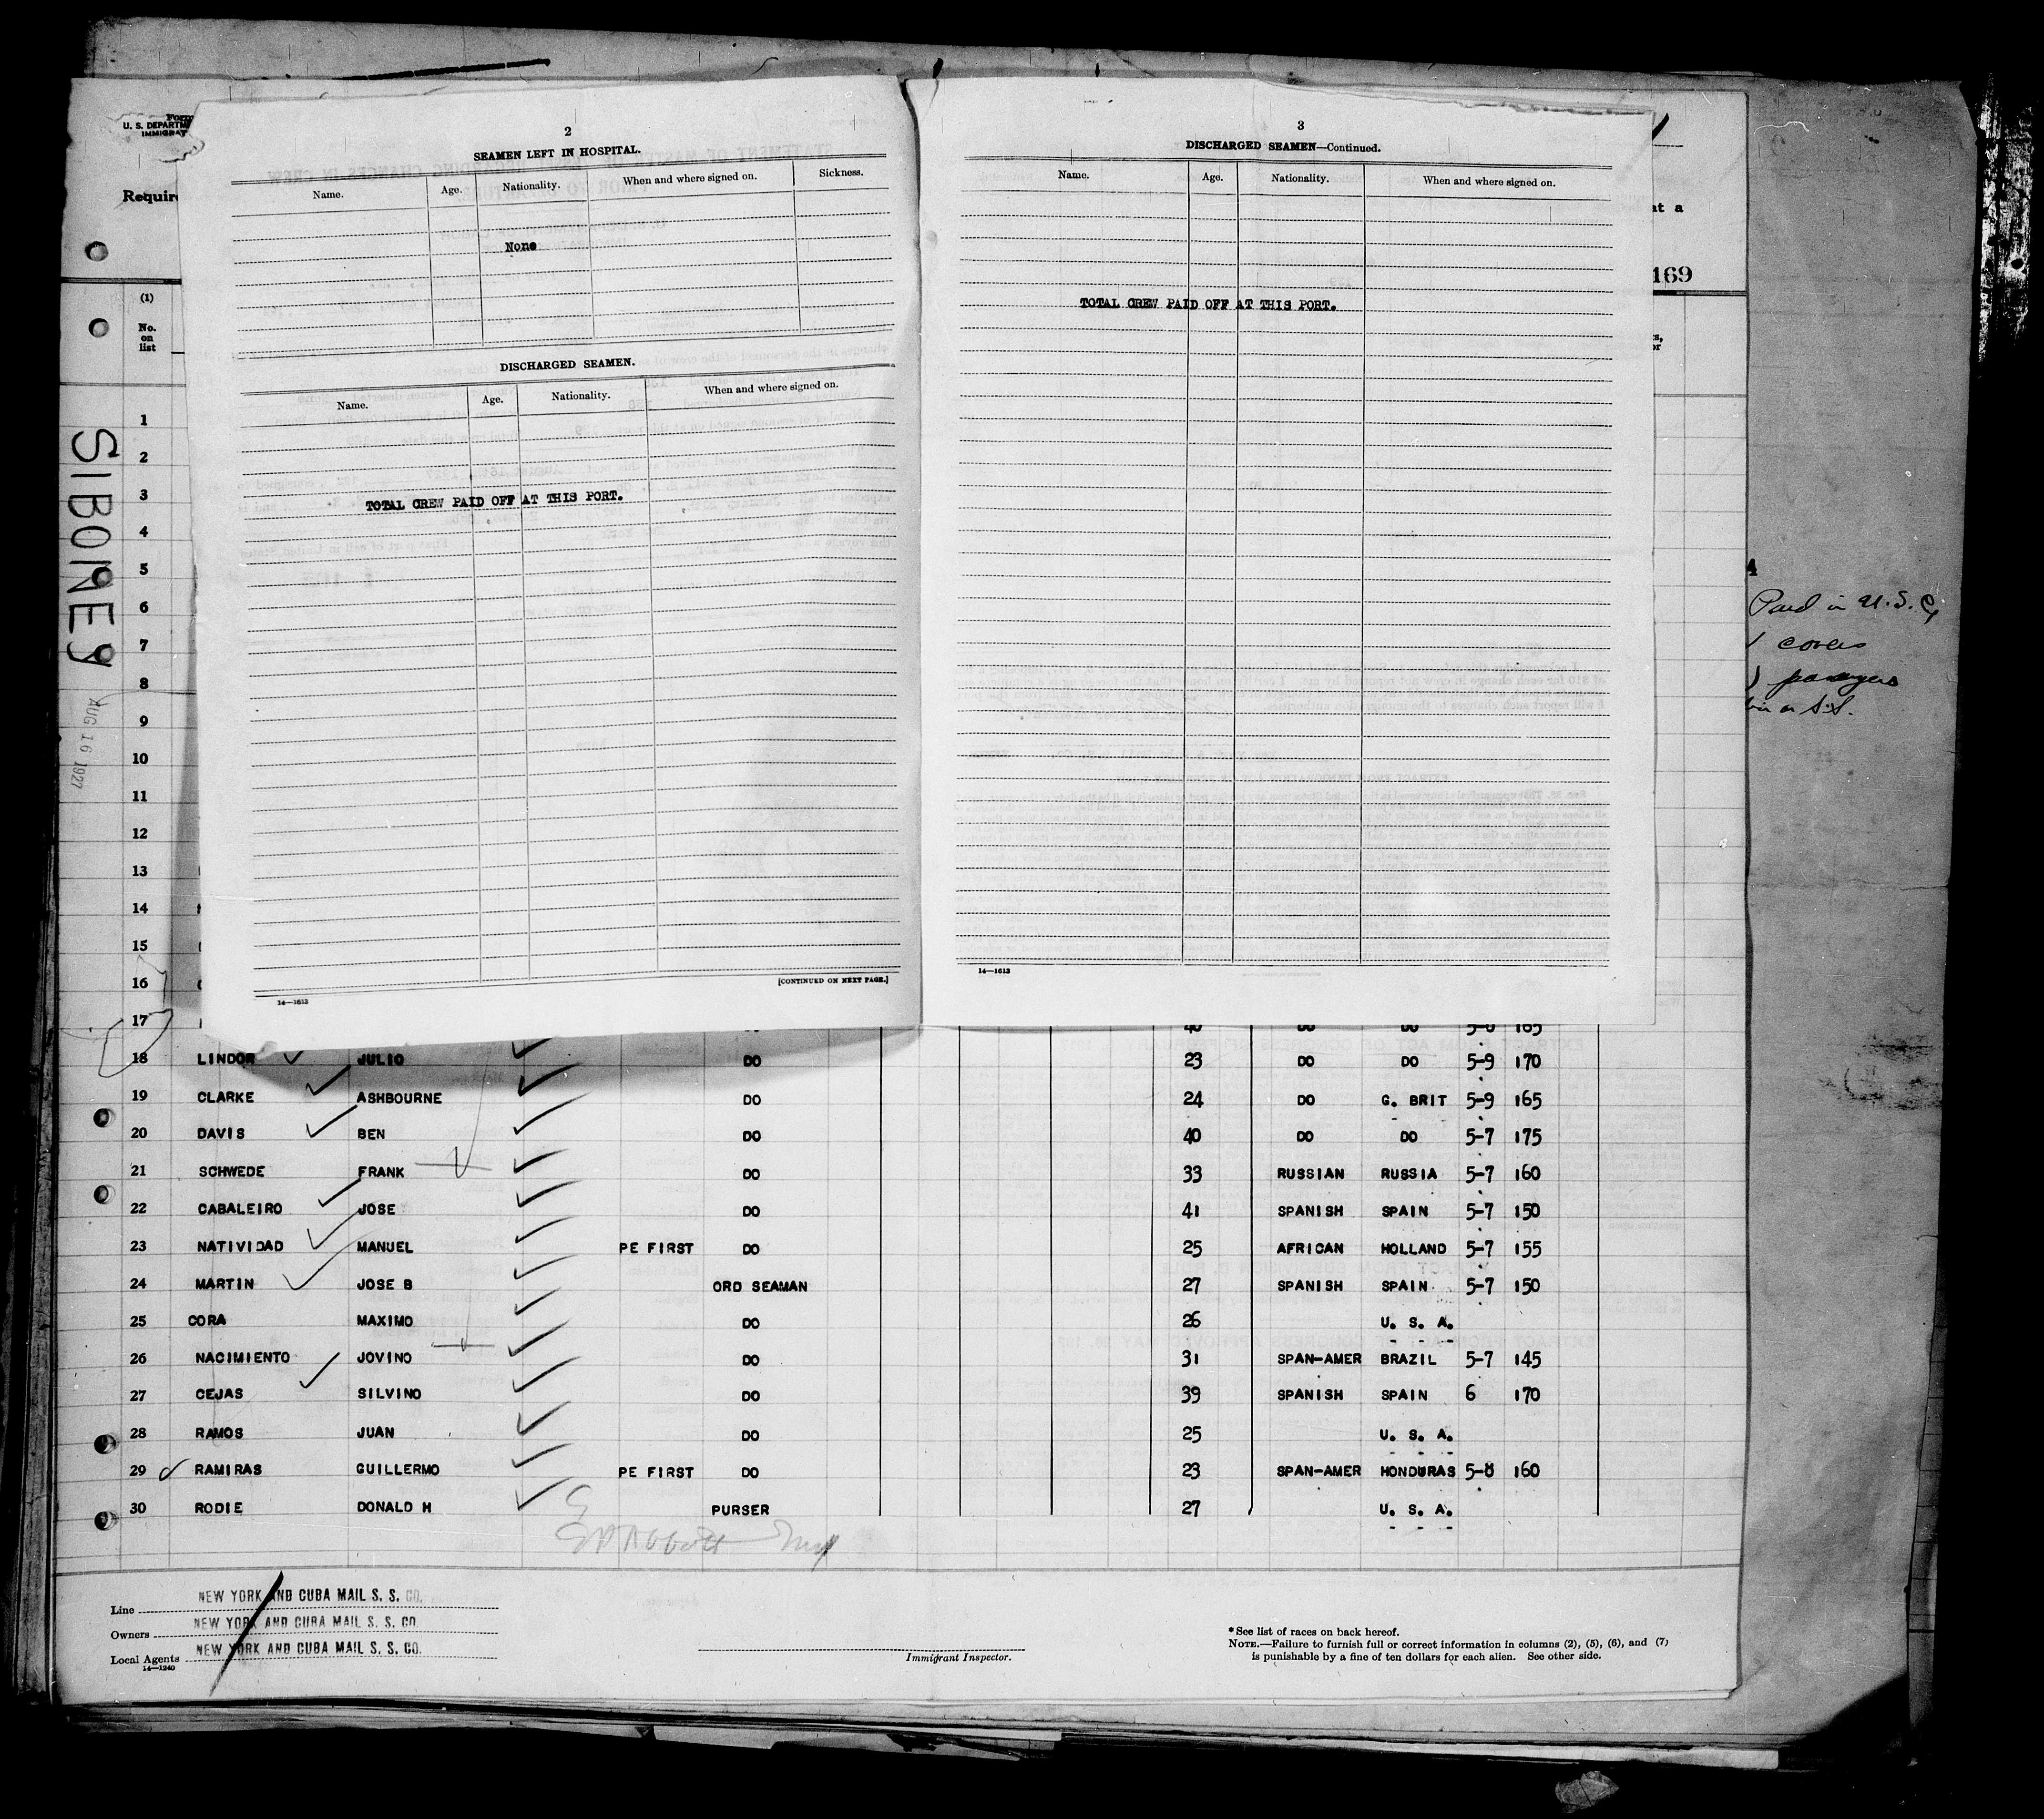 Form
U. S. DEPARTM
IMMIGRAT
Require
at a
169
(1)
No.
on
list
2
SEAMEN LEFT IN HOSPITAL.
Name. Age. Nationality. When and where signed on. Sickness.
None
DISCHARGED SEAMEN.
Name. Age. Nationality. When and where signed on.
TOTAL CREW PAID OFF AT THIS PORT.
[CONTINUED ON NEXT PAGE.]
14—1613
3
DISCHARGED SEAMEN—Continued.
Name. Age. Nationality. When and where signed on.
TOTAL CREW PAID OFF AT THIS PORT.
14—1613
SIBONEY
AUG 16 1927
Paid in U.S.
covers
1
2
3
4
5
6
7
8
9
10
11
12
13
14
15
16
17 40 DO DO 5-8 165
18 LINDOR JULIO DO 23 DO DO 5-9 170
19 CLARKE ASHBOURNE DO 24 DO G. BRIT 5-9 165
20 DAVIS BEN DO 40 DO DO 5-7 175
21 SCHWEDE FRANK DO 33 RUSSIAN RUSSIA 5-7 160
22 CABALEIRO JOSE DO 41 SPANISH SPAIN 5-7 150
23 NATIVIDAD MANUEL PE FIRST DO 25 AFRICAN HOLLAND 5-7 155
24 MARTIN JOSE B ORD SEAMAN 27 SPANISH SPAIN 5-7 150
25 CORA MAXIMO DO 26 U. S. A.
26 NACIMIENTO JOVINO DO 31 SPAN-AMER BRAZIL 5-7 145
27 CEJAS SILVINO DO 39 SPANISH SPAIN 6 170
28 RAMOS JUAN DO 25 U. S. A.
29 RAMIRAS GUILLERMO PE FIRST DO 23 SPAN-AMER HONDURAS 5-8 160
30 RODIE DONALD H PURSER 27 U. S. A.
Line NEW YORK AND CUBA MAIL S. S. CO.
Owners NEW YORK AND CUBA MAIL S. S. CO.
Local Agents NEW YORK AND CUBA MAIL S. S. CO.
14—1240
Immigrant Inspector.
*See list of races on back hereof.
NOTE.—Failure to furnish full or correct information in columns (2), (5), (6), and (7)
is punishable by a fine of ten dollars for each alien. See other side.